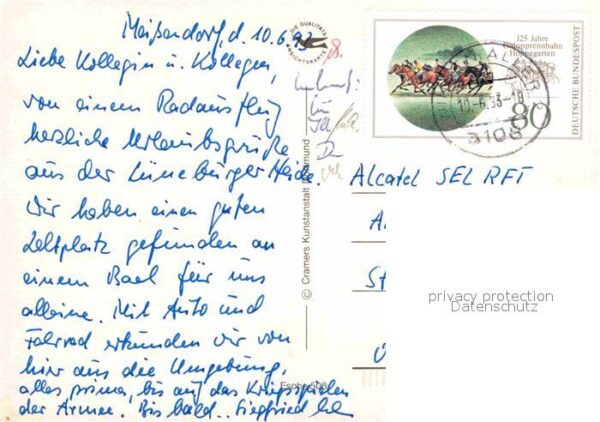 Meißendorf, d. 10.6.93
Liebe Kollegin u. Kollegen,
von einem Radausflug
herzliche Urlaubsgrüße
aus der Lüneburger Heide.
Wir haben einen guten
Zeltplatz gefunden an
einem Bach für uns
alleine. Mit Auto und
Fahrrad erkunden wir von
hier aus die Umgebung,
alles prima, bis auf das Kriegspielen
der Armee. Bis bald.. Siegfried
DIE QUALITÄTS
ANSICHTSKARTE
© Cramers Kunstanstalt Dortmund
125 Jahre
Galopprennbahn
Hoppegarten
DEUTSCHE BUNDESPOST
80
10.-6.93-19
3108
Alcatel SEL RFT
A
St
privacy protection
Datenschutz